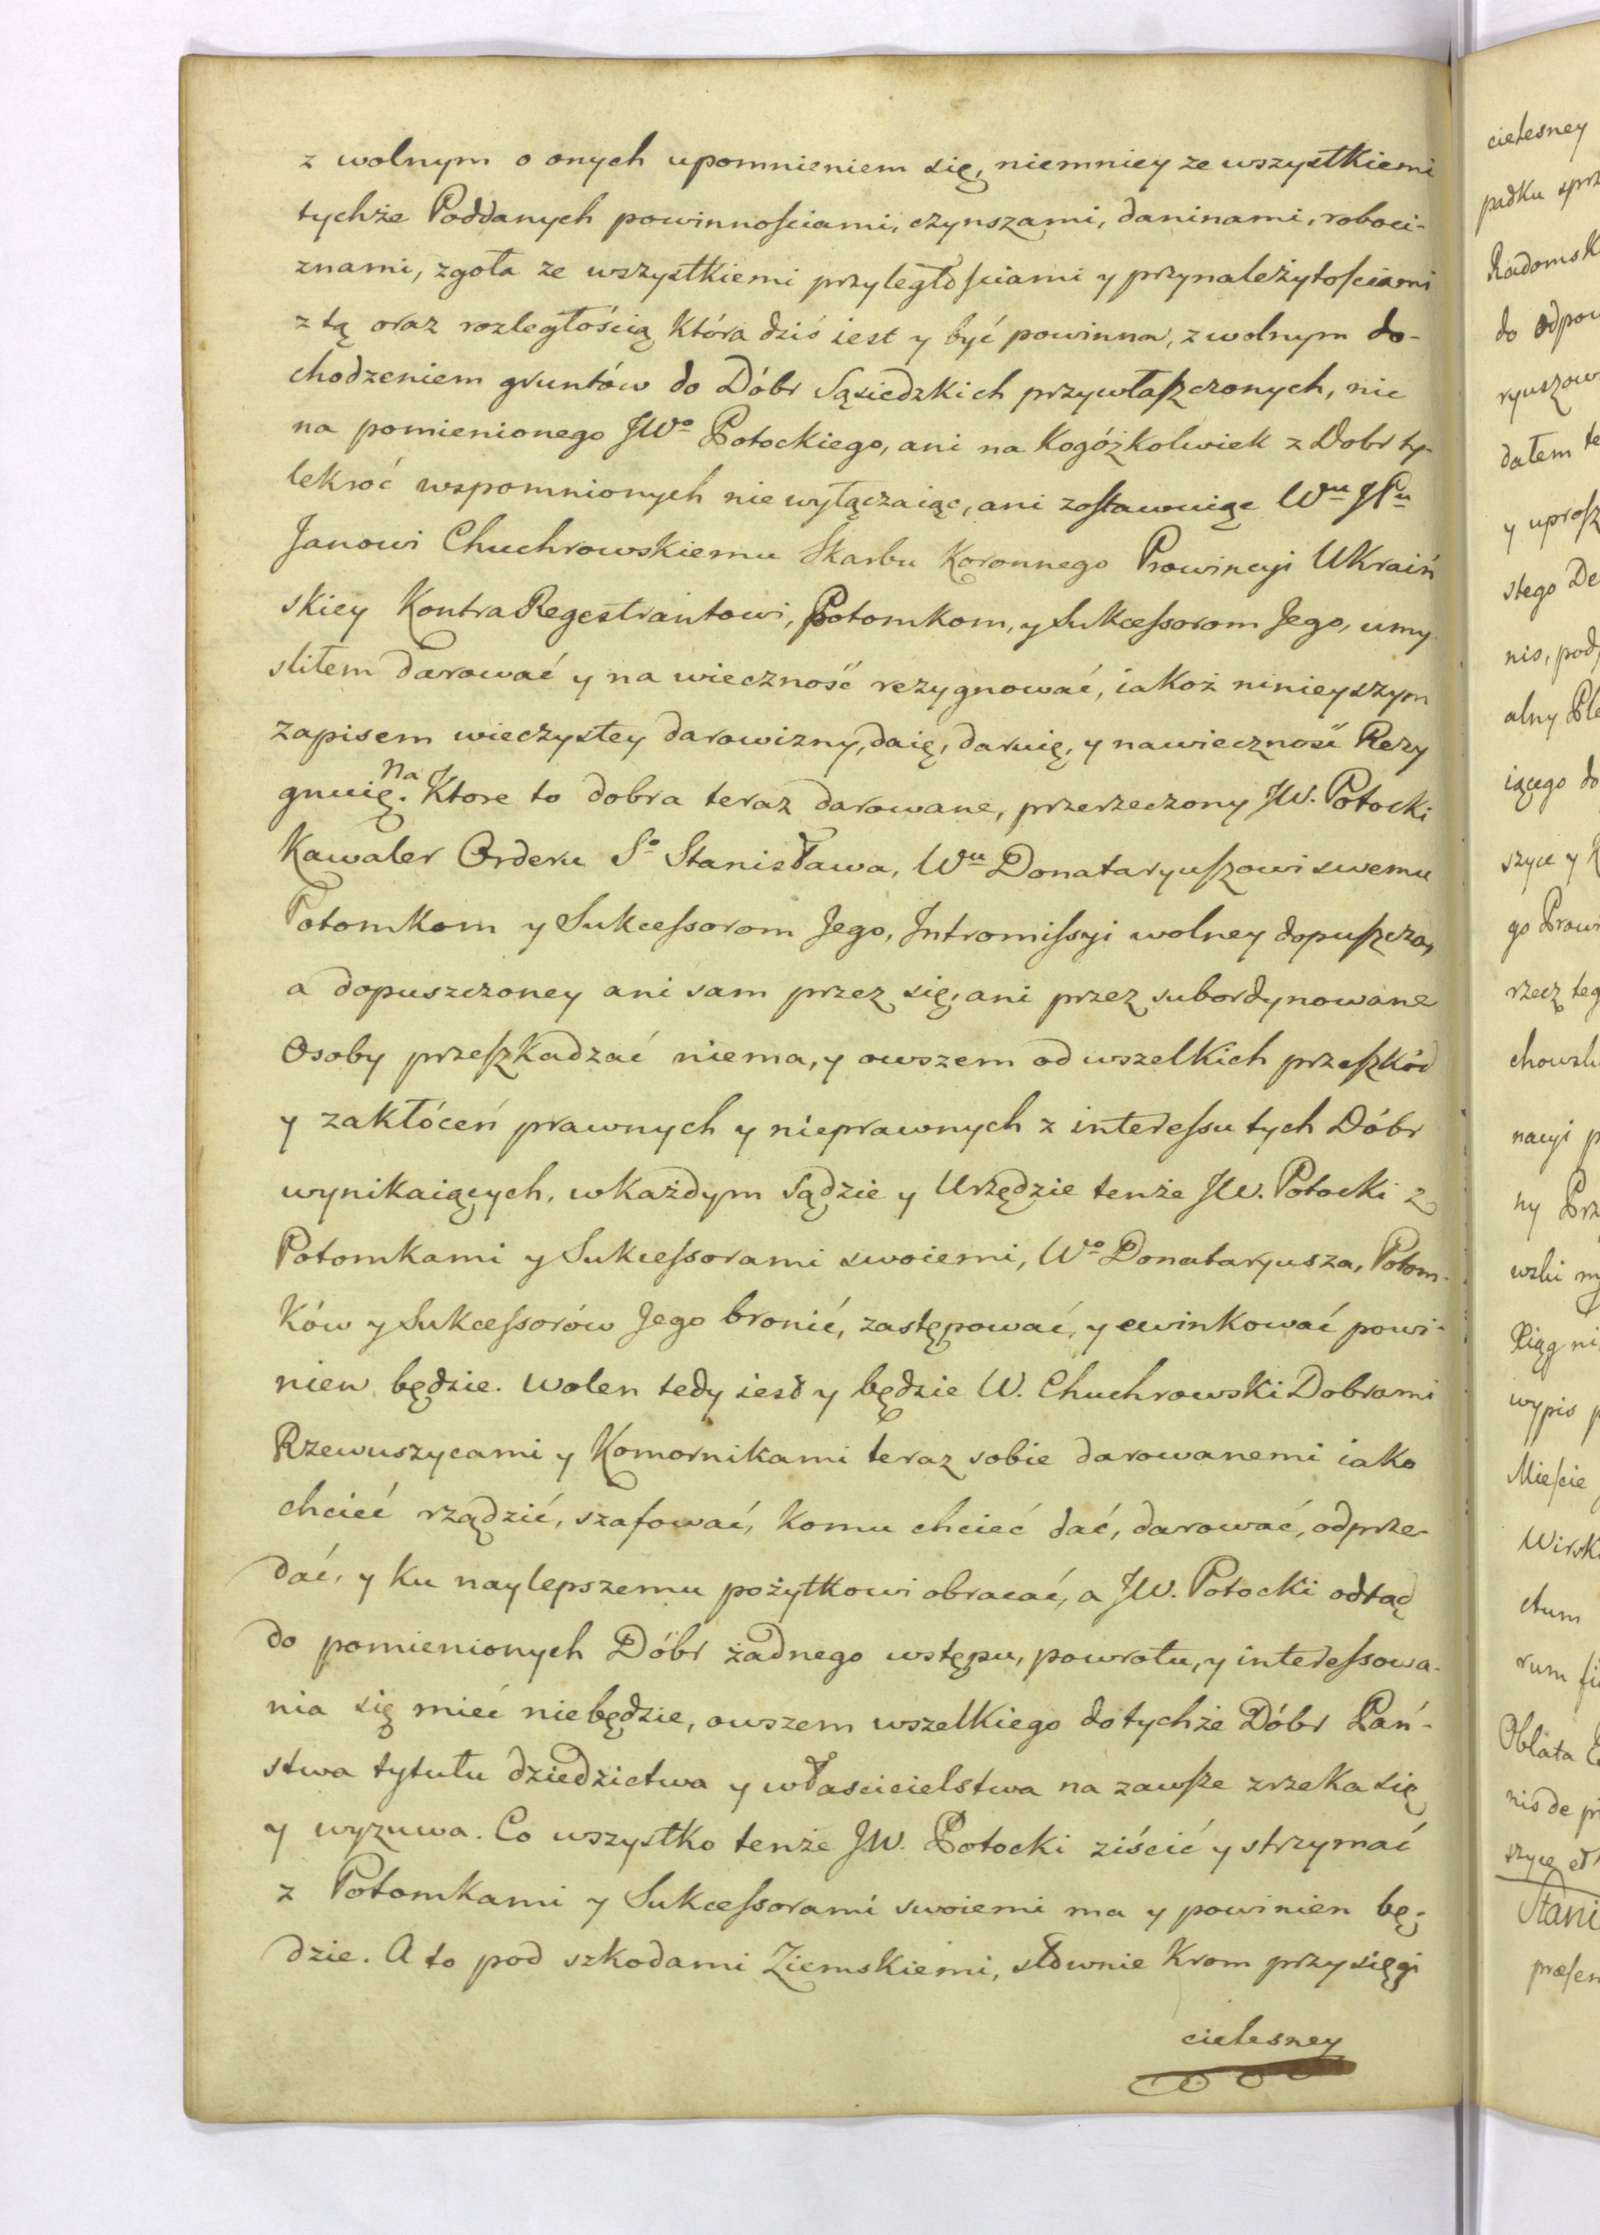 z wolnym o onych upomnieniem się, niemniey ze wszystkiemi
tychże Poddanych powinnościami, czynszami, daninami, roboci-
znami, zgoła ze wszystkiemi przyległościami y przynależytościami
z tą oraz rozległością która dziś iest y być powinna, z wolnym do-
chodzeniem gruntów do Dóbr Sąsiedzkich przywłaszczonych, nic
na pomienionego JWo Potockiego, ani na kogóżkolwiek z Dobr ty-
lekroć wspomnionych nie wyłączaiąc, ani zostawuiąc Wu JPu
Janowi Chuchrowskiemu Skarbu Koronnego Prowincyi Ukraiń
skiey KontraRegestrantowi, Potomkom, y Sukcessorom Jego, umy
sliłem darować y na wieczność rezygnować, iakoż ninieyszym
zapisem wieczystey darowizny, daię, daruię, y nawieczność Rezy
gnuię. Na Ktore to dobra teraz darowane, przerzeczony JW. Potocki
Kawaler Orderu So Stanisława, Wu Donataryuszowi swemu
Potomkom y Sukcessorom Jego, Intromissyi wolney dopuszcza,
a dopuszczoney ani sam przez się, ani przez subordynowane
Osoby przeszkadzać niema, y owszem od wszelkich przeszkód
y zakłóceń prawnych y nieprawnych z interessu tych Dóbr
wynikaiących, w każdym Sądzie y Urzędzie tenże JW. Potocki z
Potomkami y Sukcessorami swoiemi, Wo Donataryusza, Potom-
ków y Sukcessorów Jego bronić, zastępować, y ewinkować powi-
nien będzie. Wolen tedy iest y będzie W. Chuchrowski Dobrami
Rzewuszycami y Komornikami teraz sobie darowanemi iako
chcieć rządzić, szafować, komu chcieć dać, darować, odprze-
dać, y ku naylepszemu pożytkowi obracać, a JW. Potocki odtąd
do pomienionych Dóbr żadnego wstępu, powrotu, y interessowa-
nia się mieć niebędzie, owszem wszelkiego do tychże Dóbr Pań-
stwa tytułu dziedzictwa y właścicielstwa na zawsze zrzeka się
y wyzuwa. Co wszystko tenże JW. Potocki ziścić y strzymać
z Potomkami y Sukcessorami swoiemi ma y powinien bę-
dzie. A to pod szkodami Ziemskiemi, słownie krom przysięgi
cielesney
cielesney
padku
Radomsk
do odpow
ryuszow
dałem te
y uprosz
stego De
nis, pod
alny
iącego do
szyce y
go Prowi
rzecz teg
nacyi p
ny Prz
wypis p
Mieście
ctum
rum
Oblata
nis de
szyce et
Stani
præsen